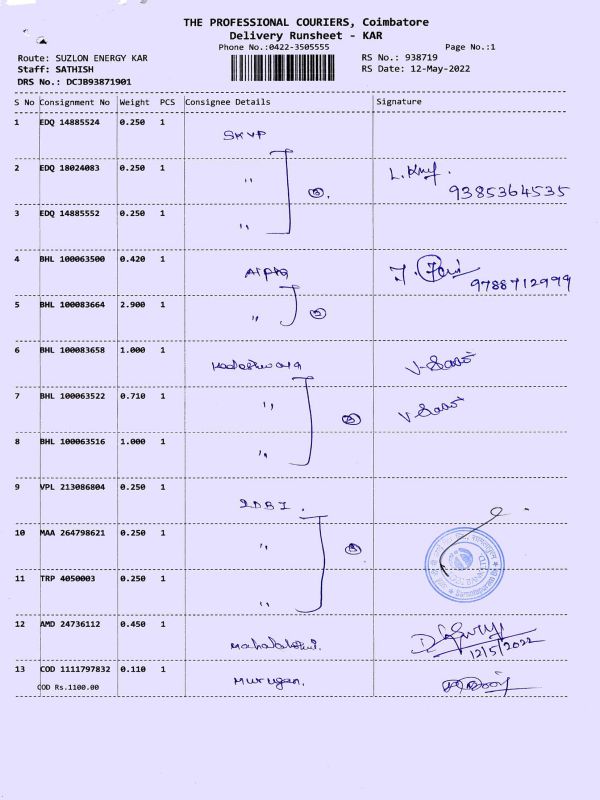 THE PROFESSIONAL COURIERS, Coimbatore
Delivery Runsheet - KAR
Phone No.:0422-3505555
Page No.:1
Route: SUZLON ENERGY KAR
RS No.: 938719
Staff: SATHISH
RS Date: 12-May-2022
DRS No.: DCJB93871901
S No Consignment No Weight PCS Consignee Details Signature
1 EDQ 14885524 0.250 1 SKVP
2 EDQ 18024083 0.250 1 " 3.
9385364535
3 EDQ 14885552 0.250 1 "
4 BHL 100063500 0.420 1
9788712999
5 BHL 100083664 2.900 1 "
6 BHL 100083658 1.000 1
7 BHL 100063522 0.710 1 "
8 BHL 100063516 1.000 1 "
9 VPL 213086804 0.250 1 IDBI.
10 MAA 264798621 0.250 1 "
11 TRP 4050003 0.250 1 "
12 AMD 24736112 0.450 1 Mahalakshmi.
12/5/2022
13 COD 1111797832 0.110 1 Murugan.
COD Rs.1100.00